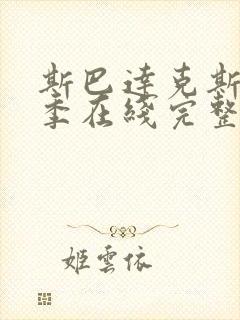 斯巴達克斯
季在綫完整
姬雲依